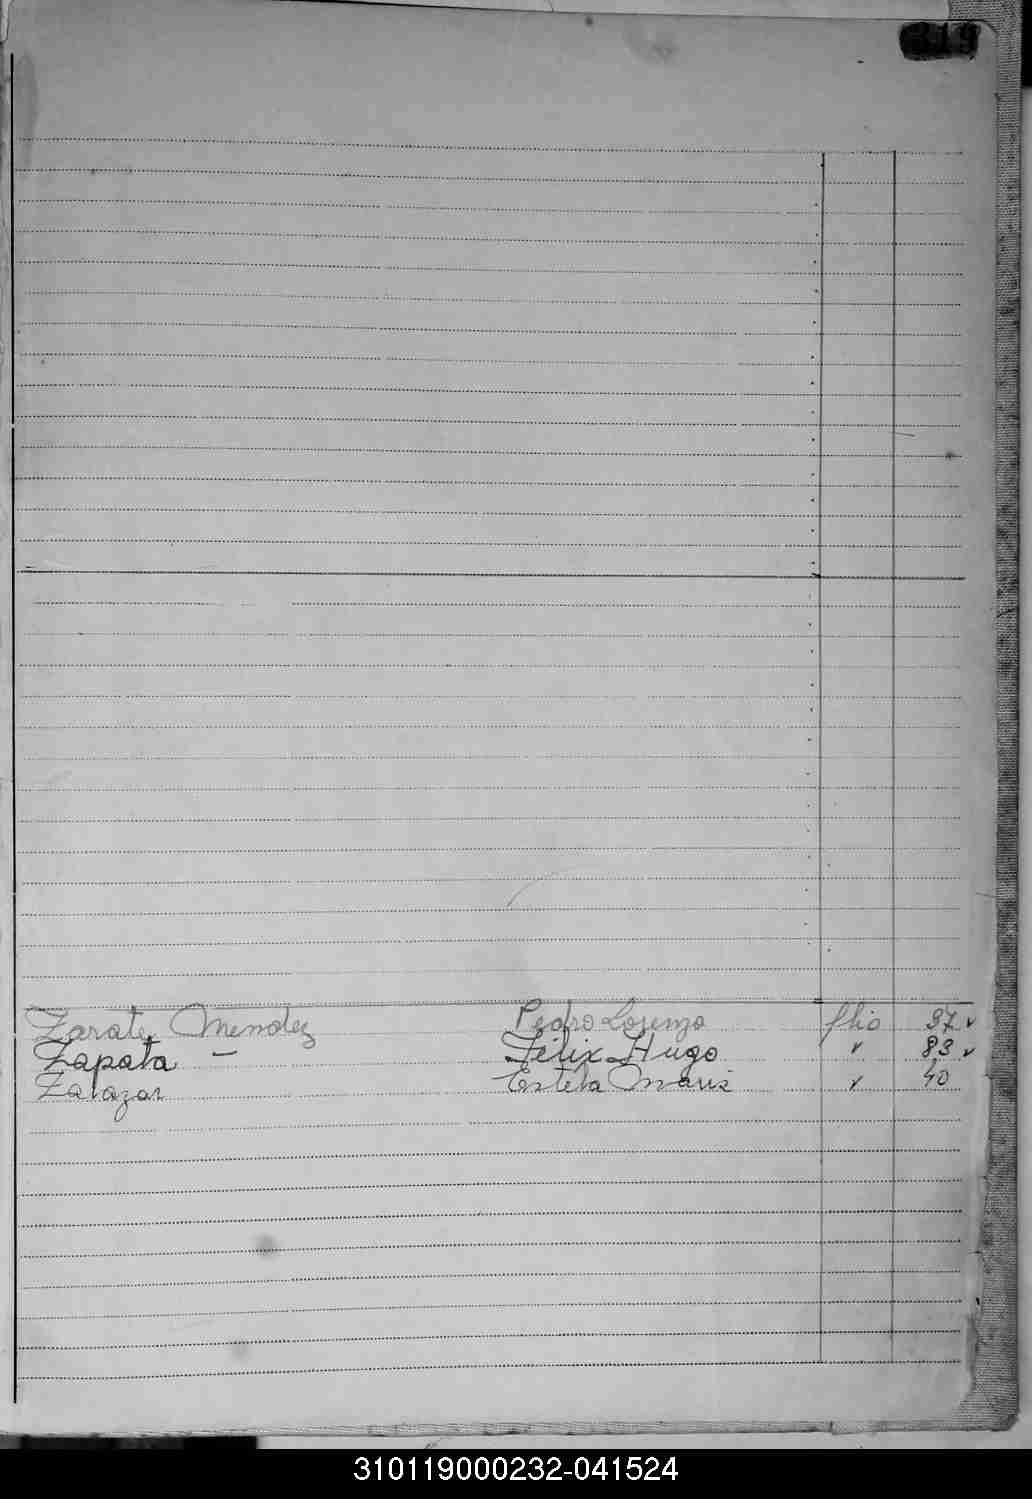 319
Zarate Mendez Pedro Lorenzo flio 97 v
Zapata - Felix Hugo v 83 v
Zalazar Estela Maris v 40
310119000232-041524